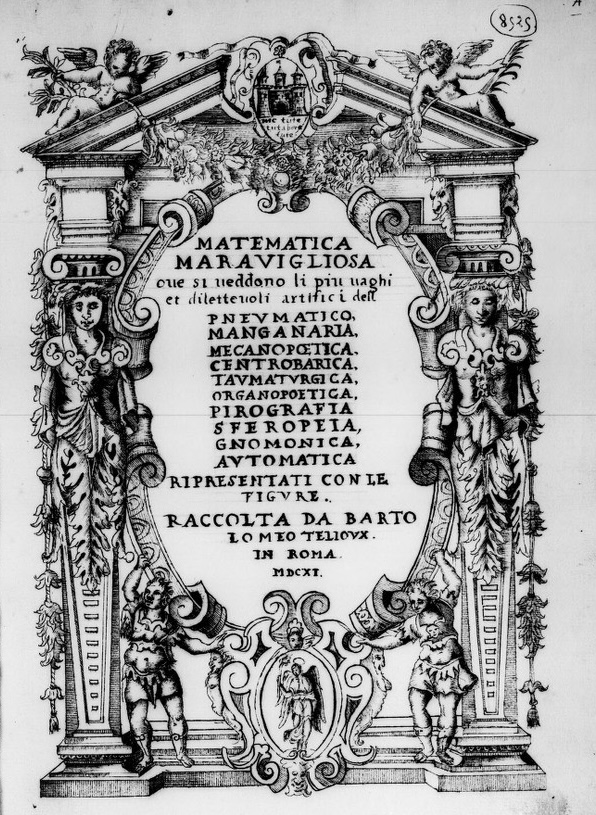 8525
MATEMATICA
MARAVIGLIOSA
oue si ueddono li piu uaghi
et diletteuoli artifici dell
PNEVMATICO,
MANGANARIA,
MECANOPŒTICA.
CENTROBARICA,
TAVMATVRGICA,
ORGANOPOETICA,
PIROGRAFIA
SFEROPEIA,
GNOMONICA,
AVTOMATICA
RIPRESENTATI CON LE
FIGVRE.
RACCOLTA DA BARTO
LOMEO TELIOVX.
IN ROMA.
MDCXI.